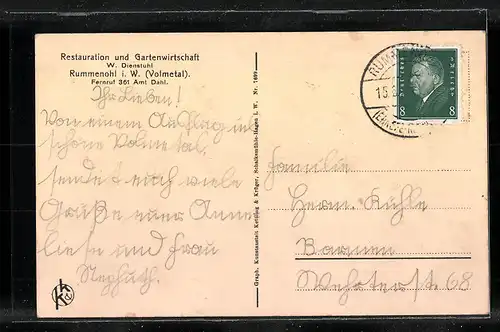 Restauration und Gartenwirtschaft
W. Dienstuhl
Rummenohl i. W. (Volmetal).
Fernruf 361 Amt Dahl.
Ihr Lieben!
Von einem Ausflug ins
schöne Volmetal,
sendet euch viele
Grüße eure Anne
liese und Frau
Graph. Kunstanstalt Kettling & Krüger, Schalksmühle-Hagen i. W. Nr. 1697
RUMMENOHL
15.
(ENNEPE-
Deutsches Reich
8 8
Familie
Herm. Kühle
Barmen
68
K